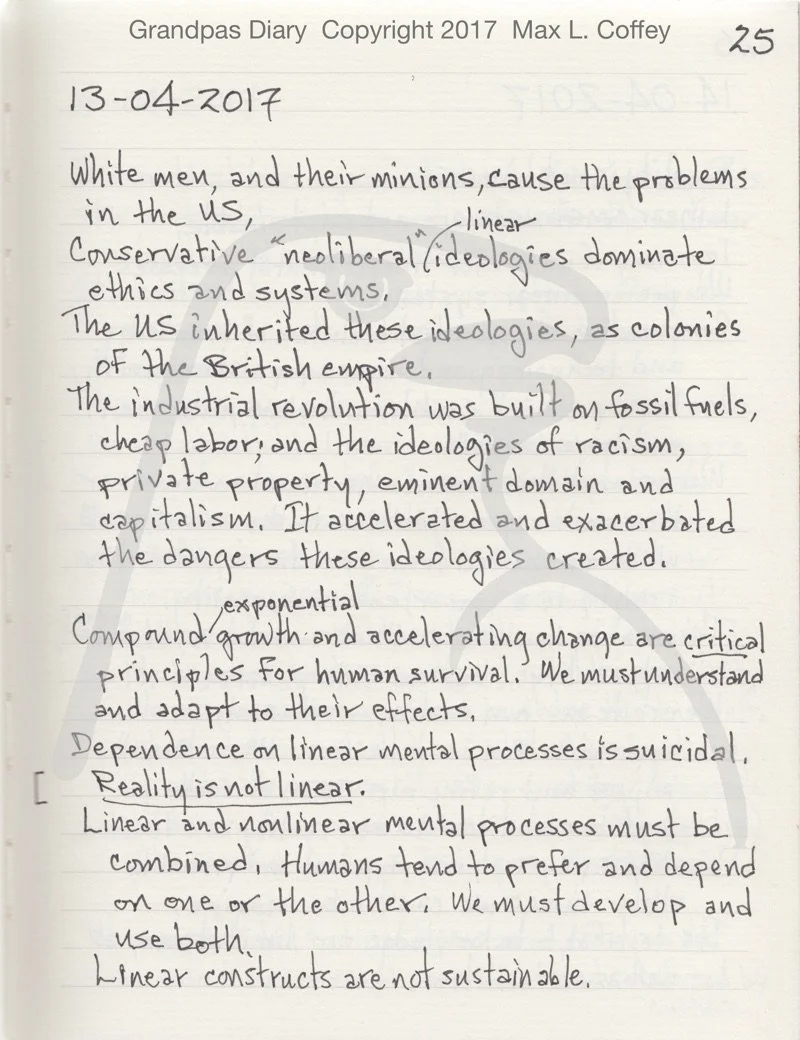 Grandpas Diary Copyright 2017 Max L. Coffey
25
13-04-2017
White men, and their minions, cause the problems
in the US,
linear
Conservative "neoliberal" ideologies dominate
ethics and systems.
The US inherited these ideologies, as colonies
of the British empire.
The industrial revolution was built on fossil fuels,
cheap labor; and the ideologies of racism,
private property, eminent domain and
capitalism. It accelerated and exacerbated
the dangers these ideologies created.
exponential
Compound growth and accelerating change are critical
principles for human survival. We must understand
and adapt to their effects.
Dependence on linear mental processes is suicidal.
[ Reality is not linear.
Linear and nonlinear mental processes must be
combined. Humans tend to prefer and depend
on one or the other. We must develop and
use both.
Linear constructs are not sustainable.